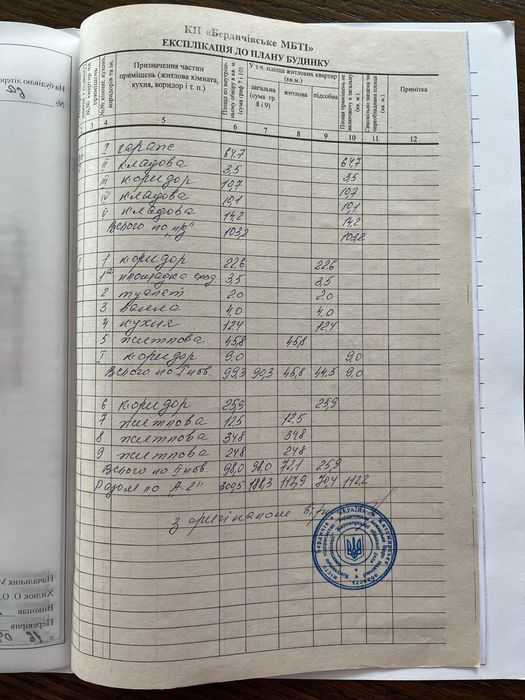 КП «Бердичівське МБТІ»
ЕКСПЛІКАЦІЯ ДО ПЛАНУ БУДИНКУ
Призначення частин приміщень (житлова кімната, кухня, коридор і т. п.)
Площа по внутрішньому обміру в кв. м (сума граф 7 і 10)
У т.ч. площа житлових квартир (кв.м.)
загальна (сума гр. 8 і 9)
житлова
підсобна
Примітка
3 4 5 6 7 8 9 10 11 12
I гараж 64,7 64,7
II кладова 3,5 3,5
III коридор 10,7 10,7
IV кладова 10,1 10,1
V кладова 14,2 14,2
Всього по "пд" 103,2 103,2
1 коридор 22,6 22,6
1а площадка сход 3,5 3,5
2 туалет 2,0 2,0
3 ванна 4,0 4,0
4 кухня 12,4 12,4
5 житлова 45,8 45,8
I коридор 9,0 9,0
Всього по I пов 99,3 90,3 45,8 44,5 9,0
6 коридор 25,9 25,9
7 житлова 12,5 12,5
8 житлова 34,8 34,8
9 житлова 24,8 24,8
Всього по II пов 98,0 98,0 72,1 25,9
Разом по "А-2" 300,5 188,3 117,9 70,4 112,2
з оригіналом
На будівлю літера
№
Начальник
Хилюк О.О.
Виконав
Перевірив